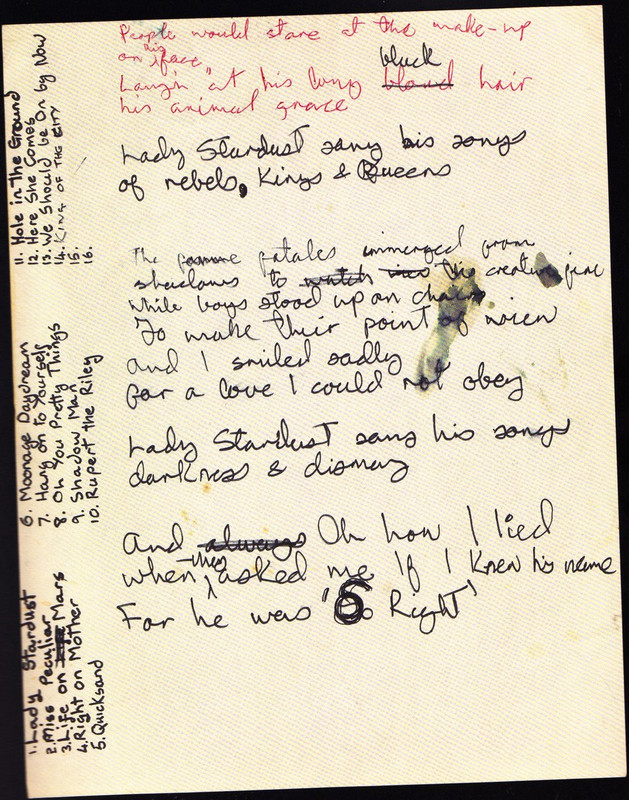 People would stare at the make-up
on his face
black
Laugh at his long blond hair
his animal grace
Lady Stardust sang his songs
of rebels, Kings & Queens
The femme fatales immerged from
shadows to watch this creature fine
while boys stood up on chairs
To make their point of wiew
and I smiled sadly
for a love I could not obey
Lady Stardust sang his songs
darkness & dismay
And always Oh how I lied
when they asked me if I knew his name
For he was 'OO Right'
1. Lady Stardust
2. Miss Peculiar
3. Life on Mars
4. Right on Mother
5. Quicksand
6. Moonage Daydream
7. Hang on to Yourself
8. Oh You Pretty Things
9. Shadow Man
10. Rupert the Riley
11. Hole in the Ground
12. Here She Comes
13. We Should be On by Now
14. KING OF THE CITY
15.
16.